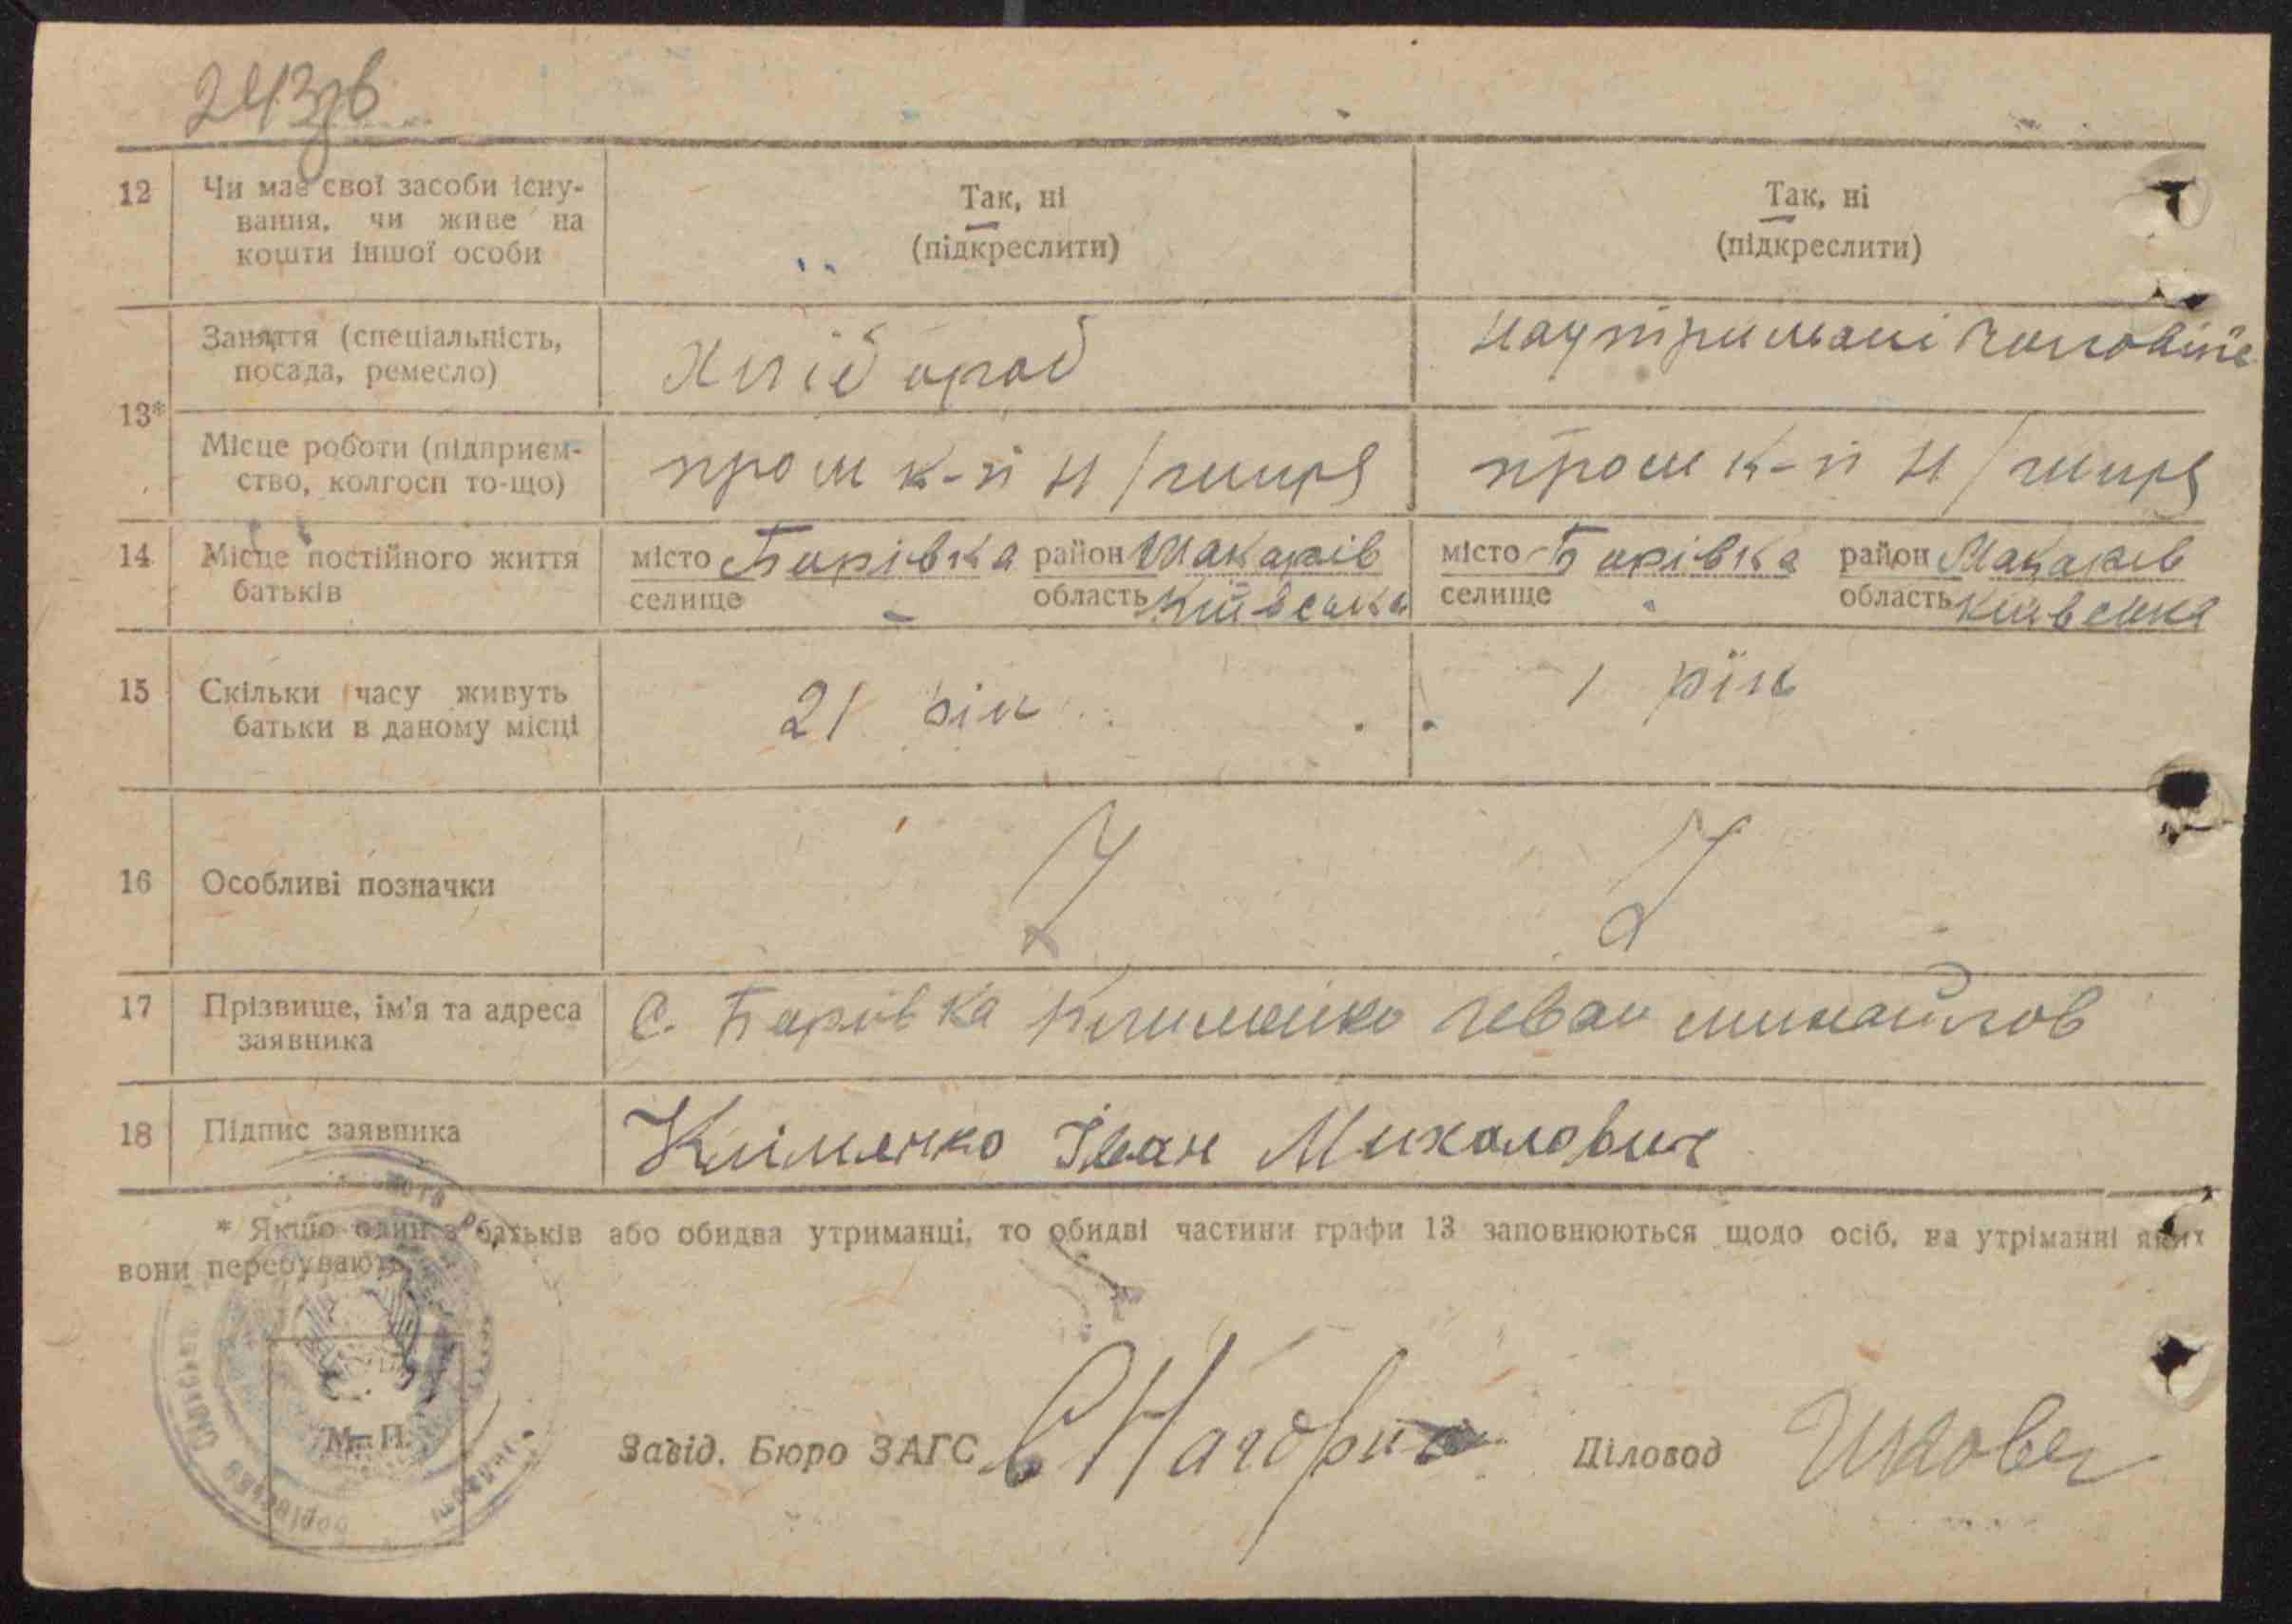 12 Чи має свої засоби існу-
вання, чи живе на
кошти іншої особи
Так, ні
(підкреслити)
Так, ні
(підкреслити)
13*
Заняття (спеціальність,
посада, ремесло)
Хліб ороб
на утримані чоловіка
Місце роботи (підприєм-
ство, колгосп то-що)
пром к-п
пром к-п
14 Місце постійного життя
батьків
місто Борівка район Макарів
селище - область Київська
місто Борівка район Макарів
селище область Київська
15 Скільки часу живуть
батьки в даному місці
21 рік
1 рік
16 Особливі позначки
17 Прізвище, ім'я та адреса
заявника
С. Борівка Клименко Іван михайлов
18 Підпис заявника
Кліменко Іван Михалович
* Якщо один з батьків або обидва утриманці, то обидві частини графи 13 заповнюються щодо осіб, на утріманні яких
вони перебувають
М. П.
Завід. Бюро ЗАГС
Діловод